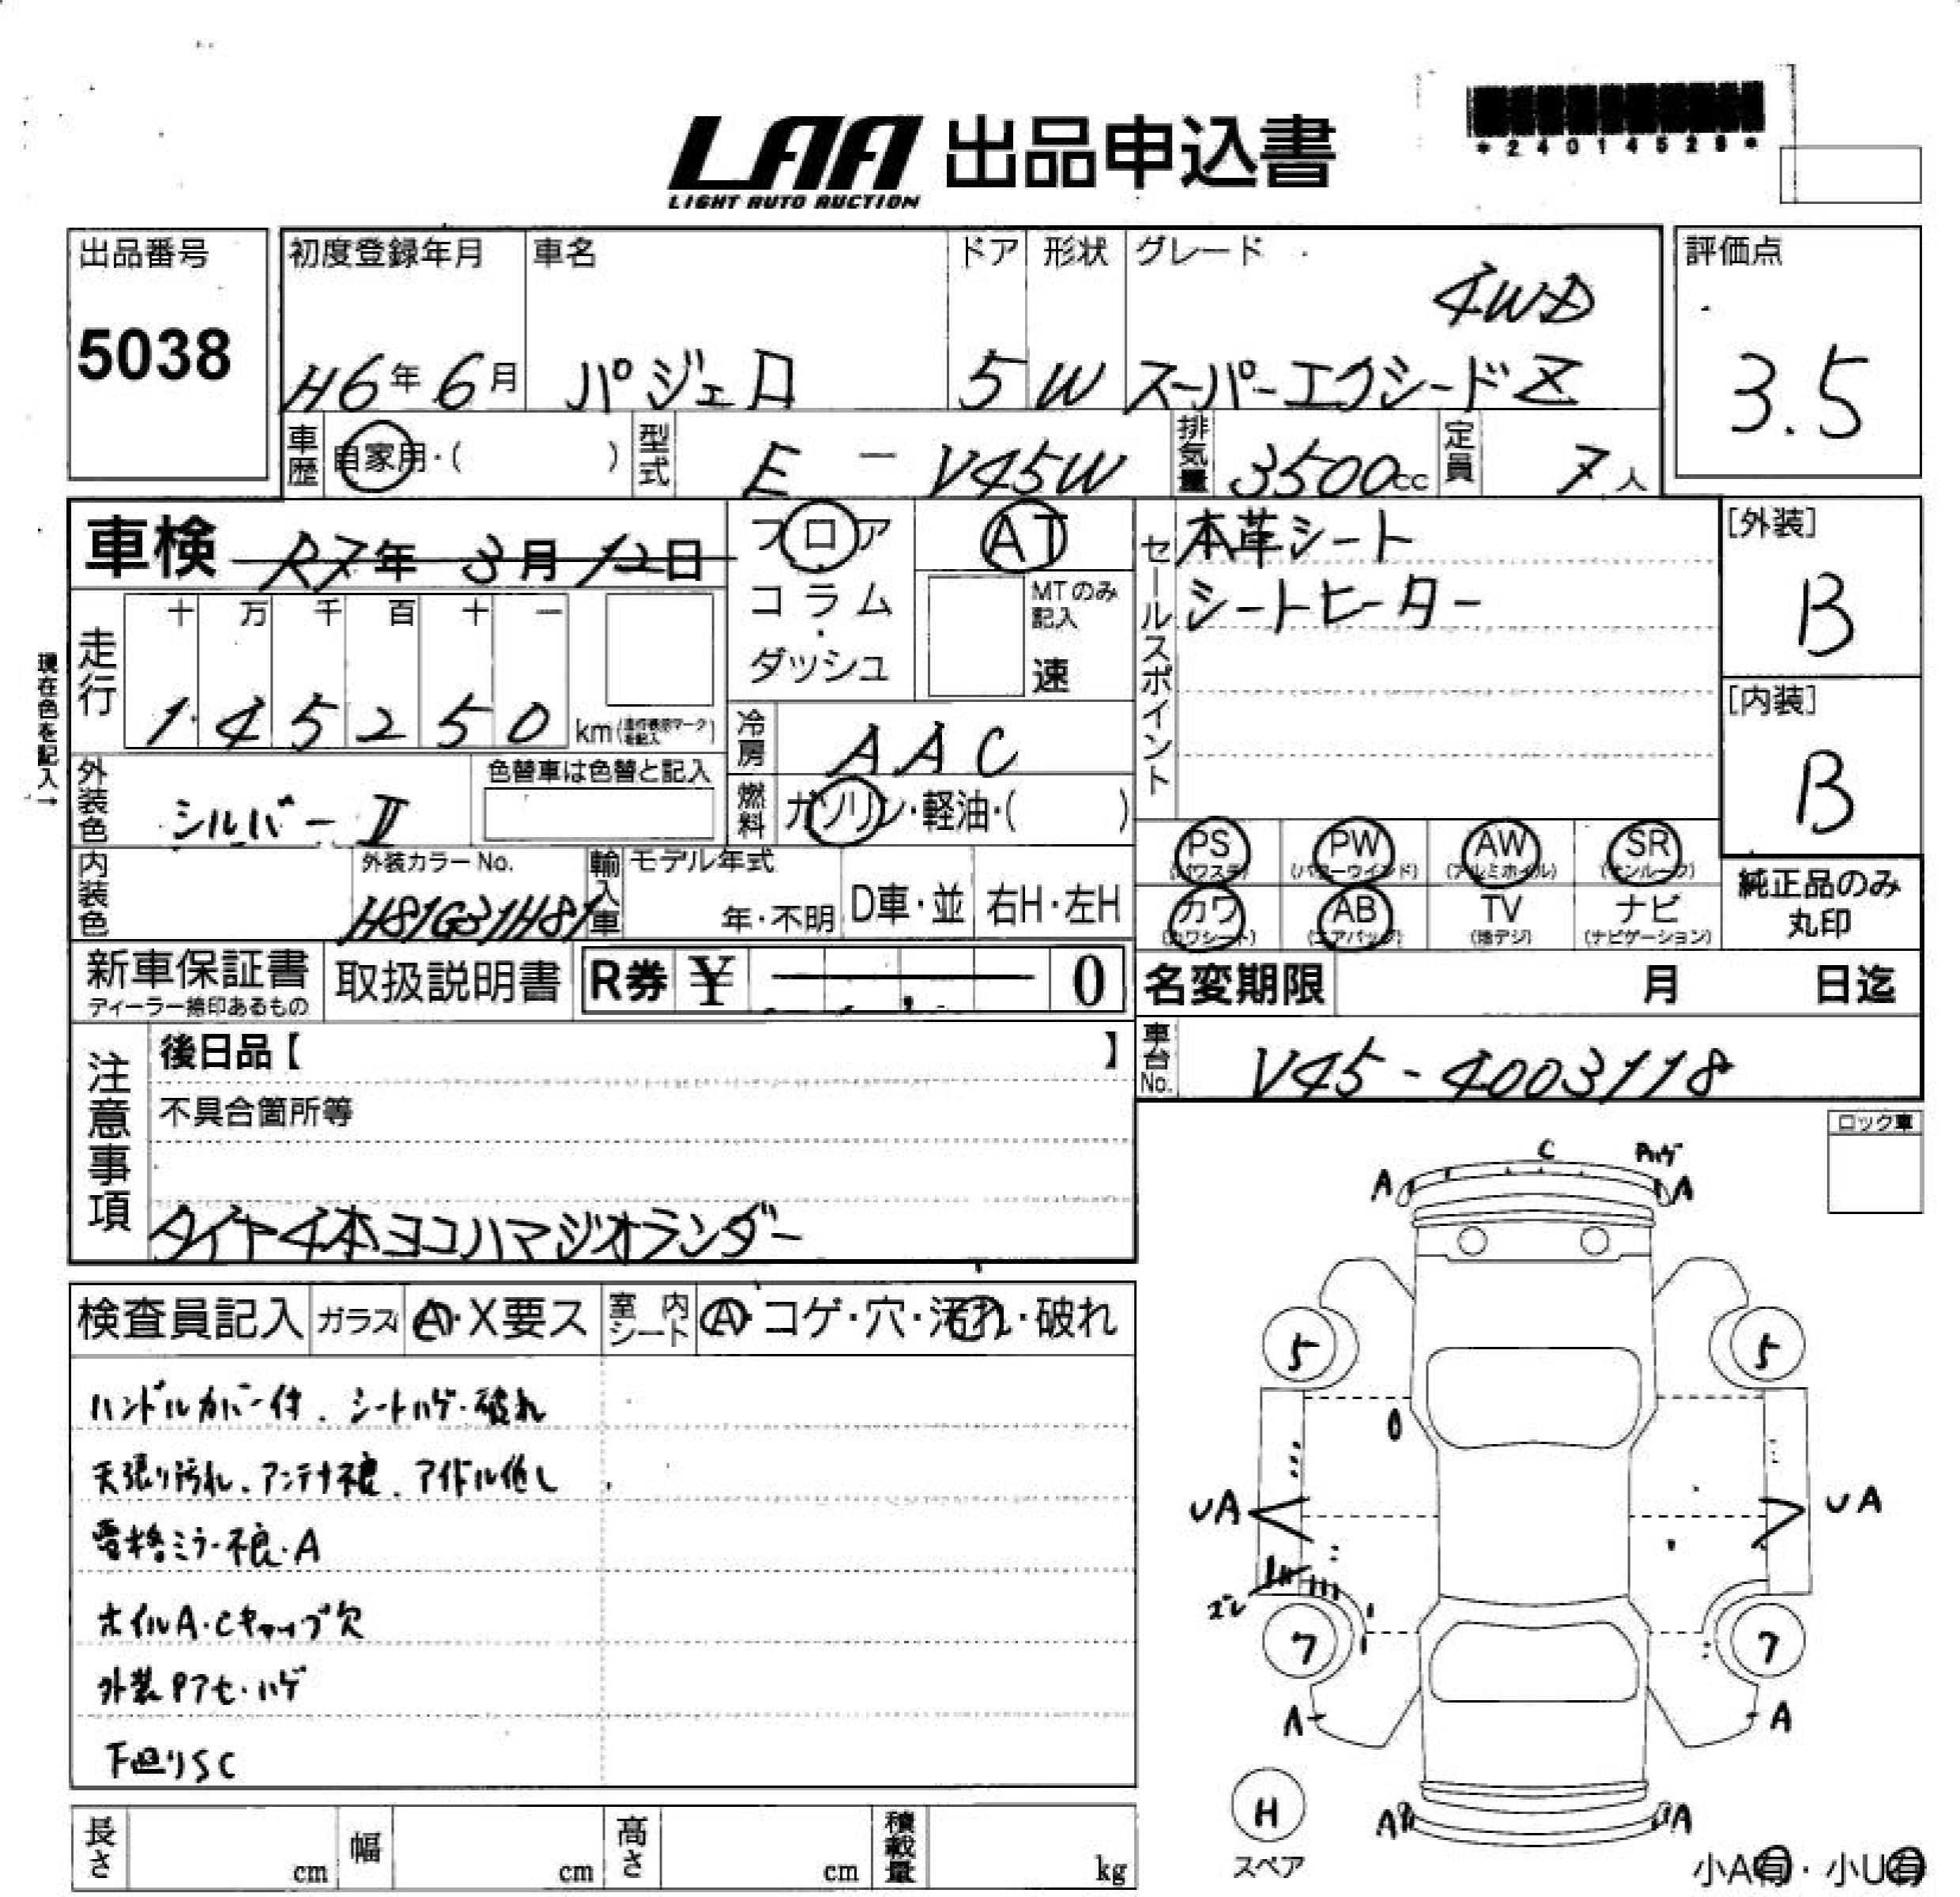 LAA 出品申込書
LIGHT AUTO AUCTION
*24014529*
出品番号
5038
初度登録年月
H6年6月
車名
パジェロ
ドア
5
形状
W
グレード
4WD
スーパーエクシードZ
評価点
3.5
車歴
自家用・( )
型式
E - V45W
排気量
3500cc
定員
7人
車検 R7年 3月12日
フロア
コラム・
ダッシュ
AT
MTのみ
記入
速
セールスポイント
本革シート
シートヒーター
[外装]
B
[内装]
B
現在色を記入→
走行
十 万 千 百 十 一
1 4 5 2 5 0 km
冷房
AAC
外装色
シルバーII
色替車は色替と記入
燃料
ガソリン・軽油・( )
PS
(パワステ)
PW
(パワーウインド)
AW
(アルミホイル)
SR
(サンルーフ)
カワ
(カワシート)
AB
(エアバッグ)
TV
(地デジ)
ナビ
(ナビゲーション)
純正品のみ
丸印
内装色
外装カラーNo.
H81G31H81
輸入車
モデル年式
年・不明
D車・並
右H・左H
新車保証書
ディーラー捺印あるもの
取扱説明書
R券 ¥ 0
名変期限 月 日迄
車台No.
V45-4003118
注意事項
後日品【 】
不具合箇所等
タイヤ4本ヨコハマジオランダー
ロック車
検査員記入
ガラス
A・X要ス
室内シート
A・コゲ・穴・汚れ・破れ
ハンドルカバー付、シートハゲ・破れ
天張り汚れ、アンテナ不良、アイドル低し
電格ミラー不良・A
ホイルA・Cキャップ欠
外装Pアセ・ハゲ
下回りSC
C
A
A
5
5
UA
UA
ズレ
7
7
A
A
H
スペア
A
A
小A有・小U有
長さ
cm
幅
cm
高さ
cm
積載量
kg